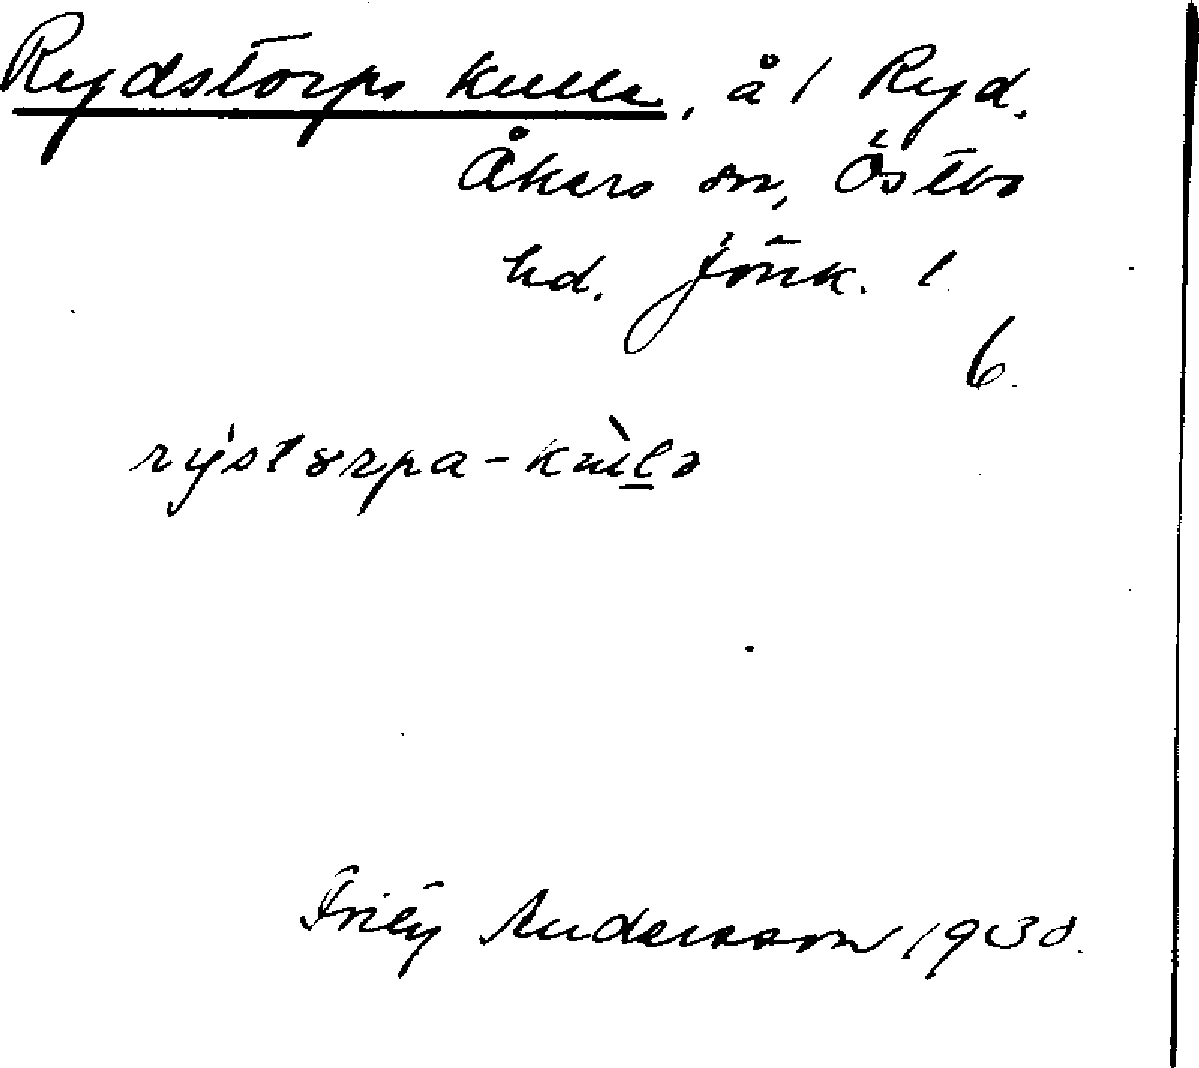 Rydstorps kulle, å / Ryd.
Åkers sn, Östbo
hd. Jönk. l
6.
rýstorpa-kùlə
Andersson 1930.